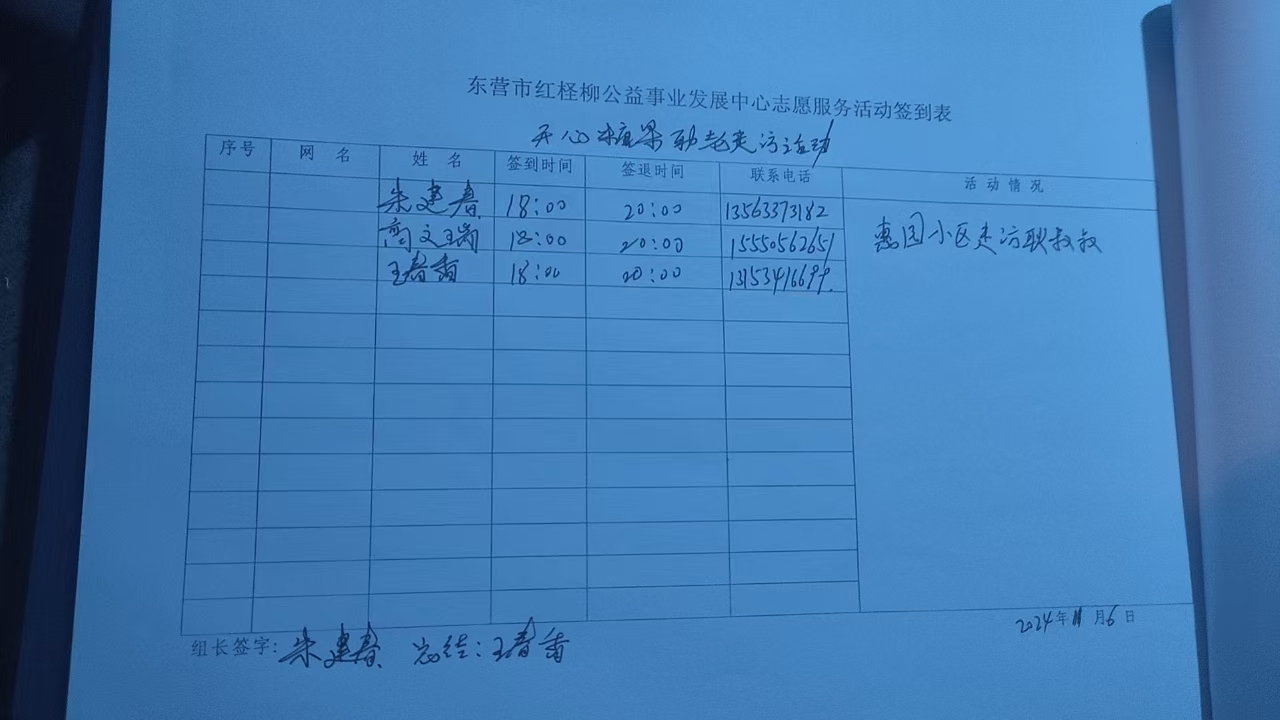 东营市红柽柳公益事业发展中心志愿服务活动签到表
开心糖果助老走访活动
序号 网 名 姓 名 签到时间 签退时间 联系电话 活 动 情 况
朱建春 18:00 20:00 13563373182
商文瑞 18:00 20:00 15550562651 惠园小区走访耿叔叔
王春香 18:00 20:00
组长签字: 朱建春 总结:王春香
2024年11月6日